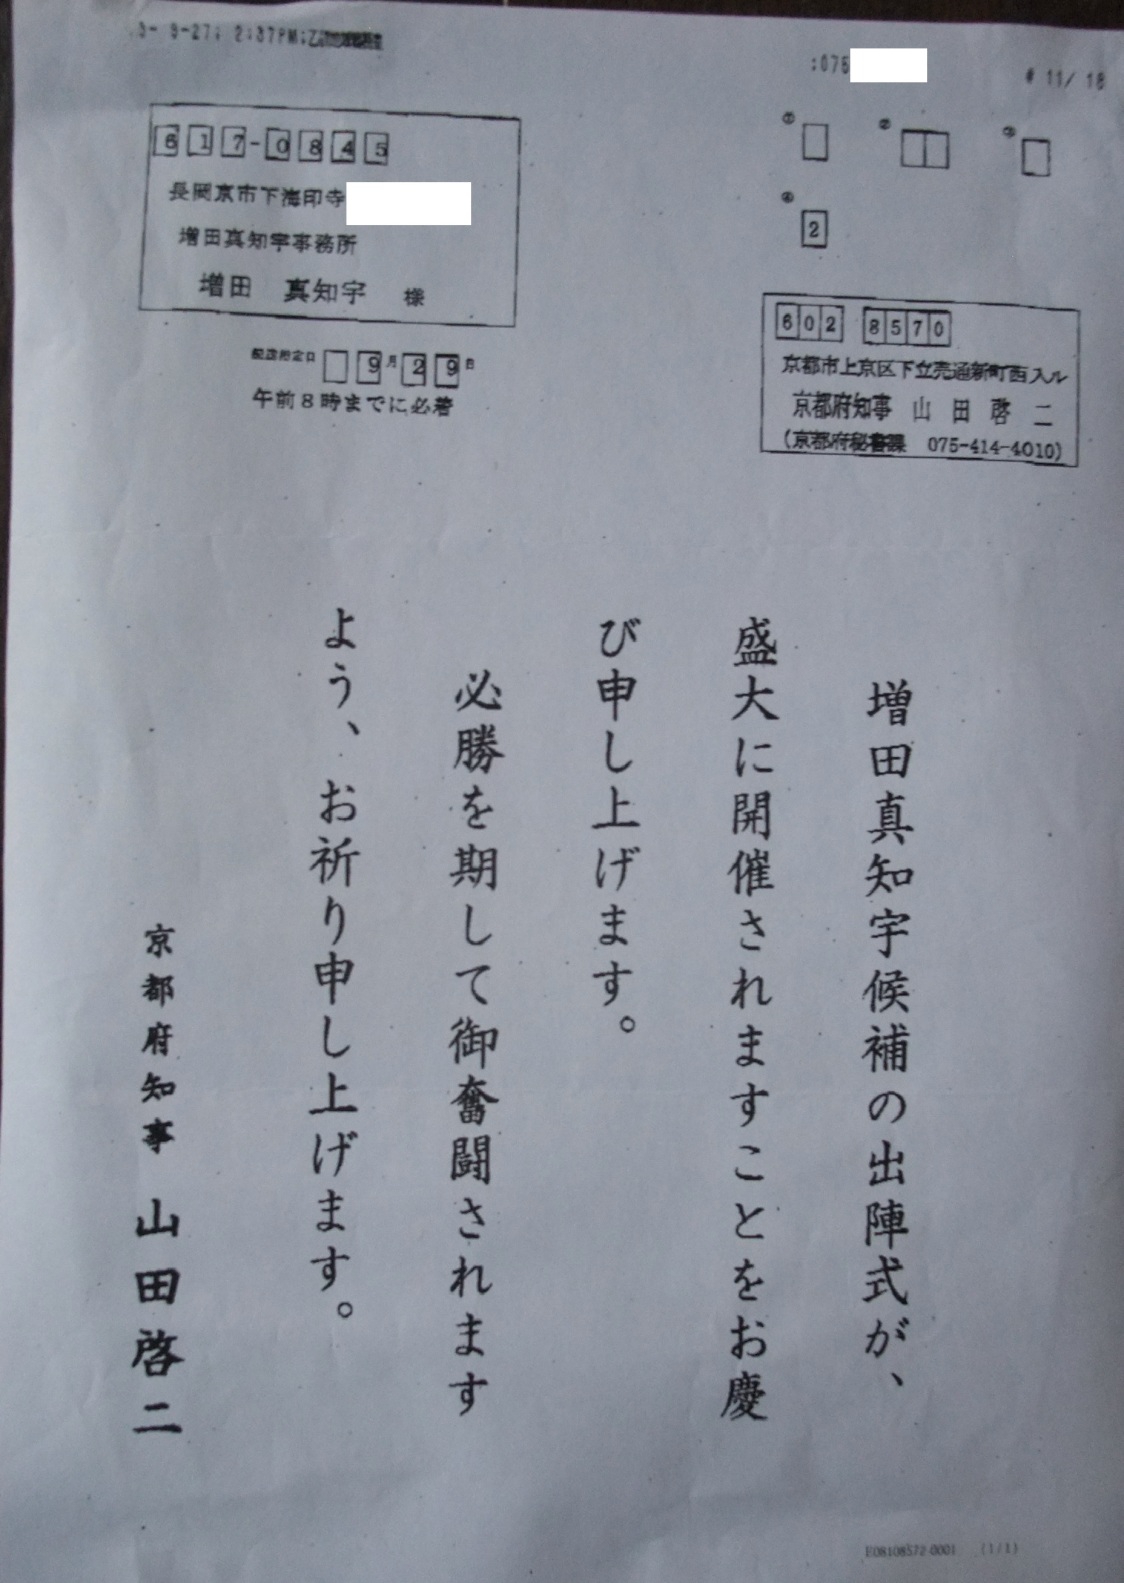 9-27; 2:37PM;
;075
# 11/ 18
617-0845
長岡京市下海印寺
増田真知宇事務所
増田 真知宇 様
配達指定日 9月29日
午前8時までに必着
①
②
③
④ 2
602 8570
京都市上京区下立売通新町西入ル
京都府知事 山田啓二
(京都府秘書課 075-414-4010)
増田真知宇候補の出陣式が、
盛大に開催されますことをお慶
び申し上げます。
必勝を期して御奮闘されます
よう、お祈り申し上げます。
京都府知事 山田啓二
E08108572-0001 (1/1)